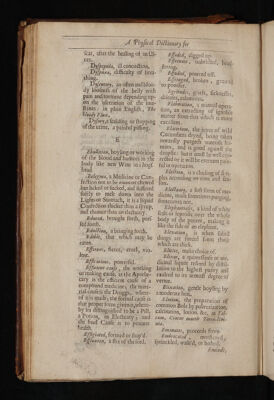 A Physical Dictionary for
scar, after the healing of an Ul-
cer.
Dyspepsia, ill concoction.
Dyspnœa, difficulty of brea-
thing.
Dysentery, an often and bloo-
dy looseness of the belly with
pain and torment depending up-
on the ulceration of the intes-
tines: in plain English, The
bloody Flux.
Dysury, a scalding or stopping
of the urine, a painful pissing.
E
Ebullition, boyling or working
of the blood and humors in the
body like new Wine in a hogs-
head.
Eclegma, a Medicine or Con-
fection not to be eaten or chewed
but licked or sucked, and suffered
softly to melt down into the
Lights or Stomach, it is a liquid
Confection thicker than a syrup,
and thinner than an electuary.
Educed, brought forth, per-
fected forth.
Eduction, a bringing forth.
Edible, that which may be
eaten.
Efferous, fierce, cruel, vio-
lent.
Efficacious, powerful.
Efficient cause, the working
or making cause, as the Apothe-
cary is the efficient cause of a
compound medicines, the mate-
rial cause is the Druggs, where-
of it is made, the formal cause is
that proper form given it, where-
by its distinguished to be a Pill,
a Potion, an Electuary; and
the final Cause is to procure
health.
Effigiated, formed or shap'd.
Effluvium, a flux of the foul.
Effoded, digged up.
Effrenate, unbridled, head-
strong.
Effused, poured out.
Elixated, broken, ground
to powder.
Egritudes, griefs, sicknesses,
diseases, calamities.
Elaboration, a natural opera-
tion, an extraction of ignoble
matter from that which is more
excellent.
Elaterium, the juyce of wild
Cucumbers dryed, being taken
inwardly purgeth waterish hu-
mors, and is good against the
dropsie: but it must be well cor-
rected or it will be extream pain-
ful in operation.
Election, is a chusing of sim-
ples according to time, and sea-
son.
Electuary, a soft form of me-
dicine, made sometimes purging,
sometimes not.
Elephantiasis, a kind of white
scab or leprosie over the whole
body of the patient, making it
like the skin of an elephant.
Elevation, is when subtil
things are forced from those
which are thick.
Elicite, make choice of.
Elixir, a quintessence or me-
dicinal liquor refined by distil-
lation to the highest purity and
exalted to its utmost degree of
vertue.
Elixation, gentle boyling by
a moderate heat.
Elution, the preparation of
common Bole by pulverization,
calcination, lotion &c. as Tal-
cum, Crocus martis Terra lem-
nia.
Emanates, proceeds from.
Embrocated, moistned,
sprinkled, washed, or bathed.